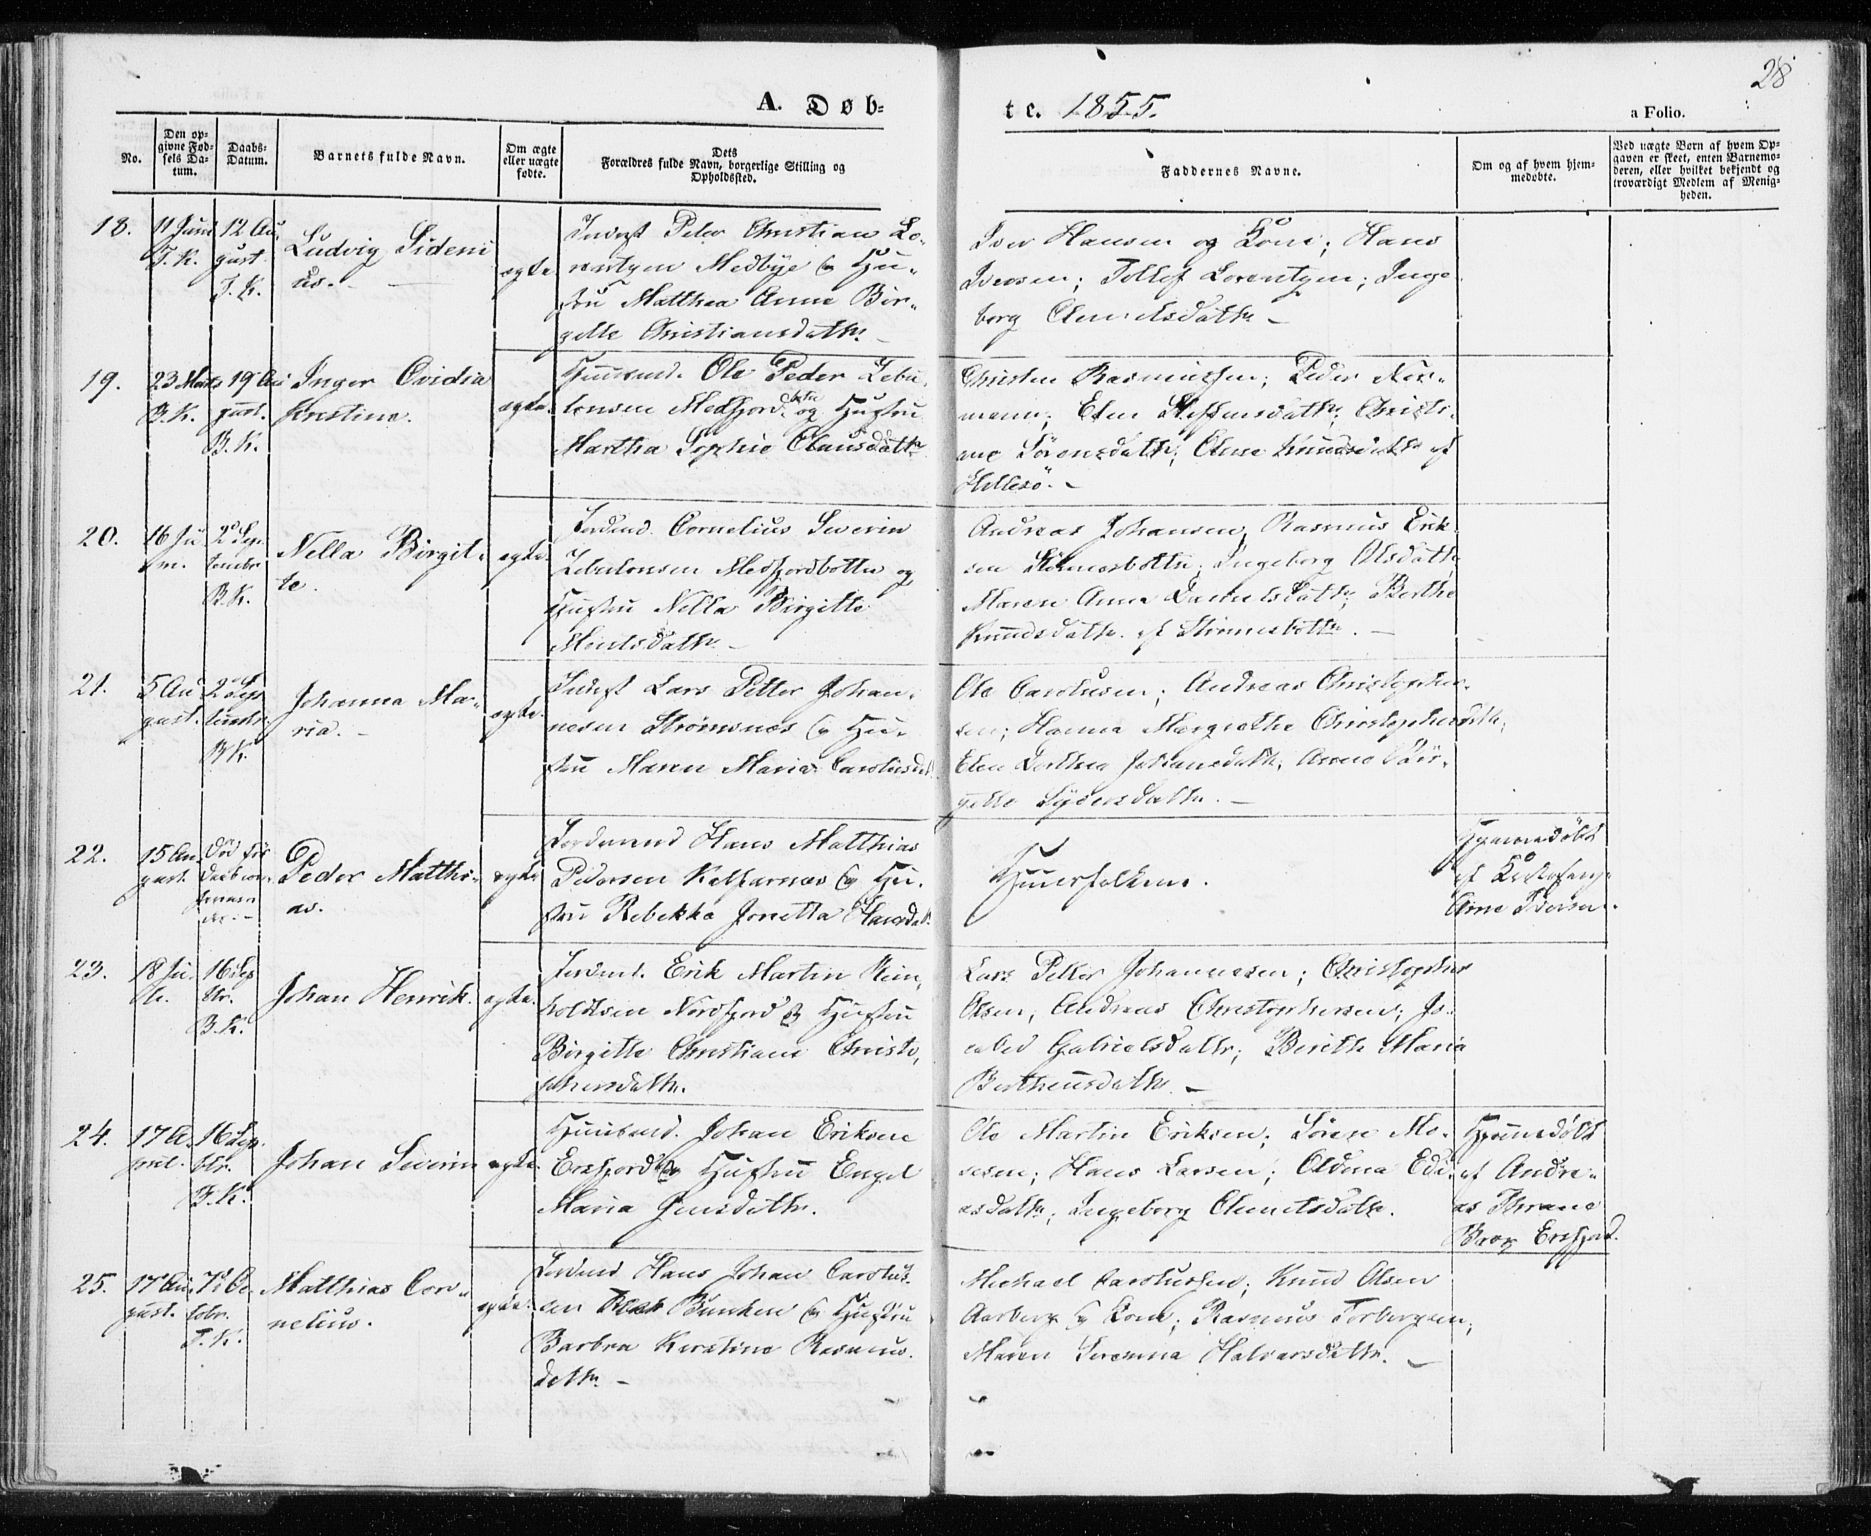 28
A. Døb-
te. 1855.
a Folio.
No.
Den op-
givne Fød-
sels Da-
tum.
Daabs-
Datum.
Barnets fulde Navn.
Om ægte
eller uægte
fødte.
Dets
Forældres fulde Navn, borgerlige Stilling og
Opholdssted.
Faddernes Navne.
Om og af hvem hjem-
medøbte.
Ved uægte Børn af hvem Op-
gaven er skeet, enten Barnemo-
deren, eller hvilket bekjendt og
troværdigt Medlem af Menig-
heden.
18.
11 Juni
T. K.
12 Au-
gust
T. K.
Ludvig Sideni
us.
ægte
Inderst Peter Christian Lo-
rentzen Medbye og Hu-
stru Matthea Anne Bir-
gitte Christiansdattr.
Iver Hansen og Kone; Hans
Iversen; Tollef Lorentzen; Inge
borg Clemetsdattr.
19.
23 Marts
B. K.
19 Au
gust.
B. K.
Inger Ovidia
Kristine.
ægte.
Huusmd. Ole Peder Zebu-
lonsen Medfjord og Hustru
Martha Sophie Clausdattr
Christen Rasmussen; Peder Nor-
mann; Elen Steffensdattr; Christi-
ane Sørensdattr; Anne Knudsdattr af
Hellesø.
20.
16 Ju
ni.
2d Sep-
tembr
B. K.
Nella Birgit-
te.
ægte
Jordmd. Cornelius Severin
Zebulonsen Medfjordbotten og
Hustru Nella Birgitte
Mentsdattr.
Andreas Johansen, Rasmus Erik-
sen Strømsbotn; Ingeborg Olsdattr
Maren Anna Danielsdattr; Berthe
Knudsdattr. af Strømsbotn.
21.
5 Au
gust.
2d Sep
tembr.
B. K.
Johanna Ma-
ria.
ægte.
Inderst Lars Petter Johan-
nesen Strømsnes og Hu-
stru Maren Maria Carolusdtr
Ole Carolusen; Andreas Christopher-
sen; Hanna Margrethe Christophersdtr;
Elen Dorthea Johansdattr, Anne Bir-
gitte Sjursdattr.
22.
15 Au
gust.
Peder Matthi-
as.
ægte
Jordmand Hans Matthias
Pedersen Kalfarnæs og Hu-
stru Rebekka Jonetta Hansdtr
Huusfolkene.
Hjemmedøbt
af Kirkesanger
Arne Iversen.
23.
18 Ju-
li.
16 Sep
tbr.
B. K.
Johan Henrik.
ægte.
Jordmd. Erik Martin Rein-
holdtsen Nordfjord og Hustru
Birgitte Christiane Christo-
phersdattr.
Lars Petter Johannesen; Christopher
Olsen, Andreas Christophersen; Ja-
cobed Gabrielsdattr; Berithe Maria
Bertheusdattr
24.
17 A-
pril.
16 Sep.
tbr.
B. K.
Johan Severin
ægte.
Huusmd. Johan Eriksen
Ersfjord og Hustru Engel
Maria Jensdattr.
Ole Martin Eriksen; Sören Mo-
sesen; Hans Larsen; Oldina Edi-
asdattr; Ingeborg Clemetsdattr.
Hjemmedøbt
af Andre-
as Thrane
Brox Ersfjord.
25.
17 Au-
gust.
7d Oc-
tobr.
T. K.
Matthias Cor-
nelius.
ægte.
Jordmd Hans Johan Carolus-
sen Bunken og Hustru
Barbra Kirstine Rasmus-
dattr.
Michael Carolussen; Knud Olsen
Aarberg og Kone; Rasmus Torbergsen,
Maren Serenna Halvarsdattr.